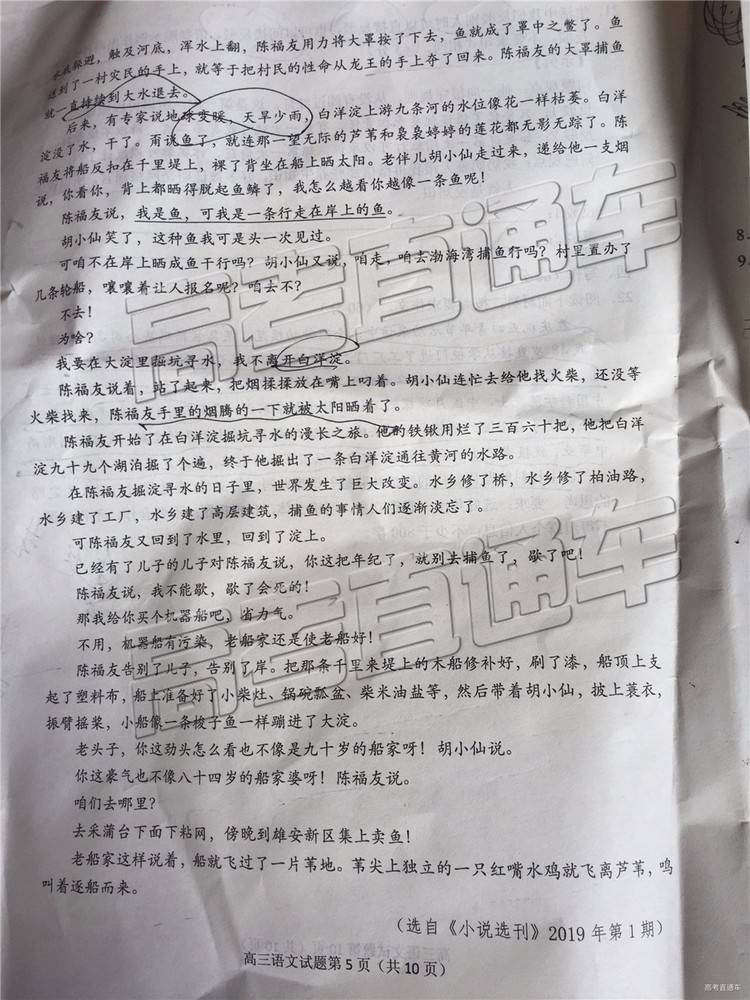 水底躲避，触及河底，浑水上翻，陈福友用力将大罩按了下去，鱼就成了罩中之鳖了。鱼
送到了一村灾民的手上，就等于把村民的性命从龙王的手上夺了回来。陈福友的大罩捕鱼
就一直持续到大水退去。
后来，有专家说地球变暖，天旱少雨，白洋淀上游九条河的水位像花一样枯萎。白洋
淀没了水，干了。甭说鱼了，就连那一望无际的芦苇和袅袅婷婷的莲花都无影无踪了。陈
福友将船反扣在千里堤上，裸了背坐在船上晒太阳。老伴儿胡小仙走过来，递给他一支烟
说，你看你，背上都晒得脱起鱼鳞了，我怎么越看你越像一条鱼呢！
陈福友说，我是鱼，可我是一条行走在岸上的鱼。
胡小仙笑了，这种鱼我可是头一次见过。
可咱不在岸上晒成鱼干行吗？胡小仙又说，咱走，咱去渤海湾捕鱼行吗？村里置办了
几条轮船，嚷嚷着让人报名呢？咱去不？
不去！
为啥？
我要在大淀里掘坑寻水，我不离开白洋淀。
陈福友说着，站了起来，把烟揉揉放在嘴上叼着。胡小仙连忙去给他找火柴，还没等
火柴找来，陈福友手里的烟腾的一下就被太阳晒着了。
陈福友开始了在白洋淀掘坑寻水的漫长之旅。他的铁锹用烂了三百六十把，他把白洋
淀九十九个湖泊掘了个遍，终于他掘出了一条白洋淀通往黄河的水路。
在陈福友掘淀寻水的日子里，世界发生了巨大改变。水乡修了桥，水乡修了柏油路，
水乡建了工厂，水乡建了高层建筑，捕鱼的事情人们逐渐淡忘了。
可陈福友又回到了水里，回到了淀上。
已经有了儿子的儿子对陈福友说，你这把年纪了，就别去捕鱼了，歇了吧！
陈福友说，我不能歇，歇了会死的！
那我给你买个机器船吧，省力气。
不用，机器船有污染，老船家还是使老船好！
陈福友告别了儿子，告别了岸。把那条千里来堤上的木船修补好，刷了漆，船顶上支
起了塑料布，船上准备好了小柴灶、锅碗瓢盆、柴米油盐等，然后带着胡小仙，披上蓑衣，
振臂摇桨，小船像一条梭子鱼一样蹦进了大淀。
老头子，你这劲头怎么看也不像是九十岁的船家呀！胡小仙说。
你这豪气也不像八十四岁的船家婆呀！陈福友说。
咱们去哪里？
去采蒲台下面下粘网，傍晚到雄安新区集上卖鱼！
老船家这样说着，船就飞过了一片苇地。苇尖上独立的一只红嘴水鸡就飞离芦苇，鸣
叫着逐船而来。
（选自《小说选刊》2019年第1期）
高三语文试题第5页（共10页）
高考直通车
高考直通车
8.
9.
高考直通车